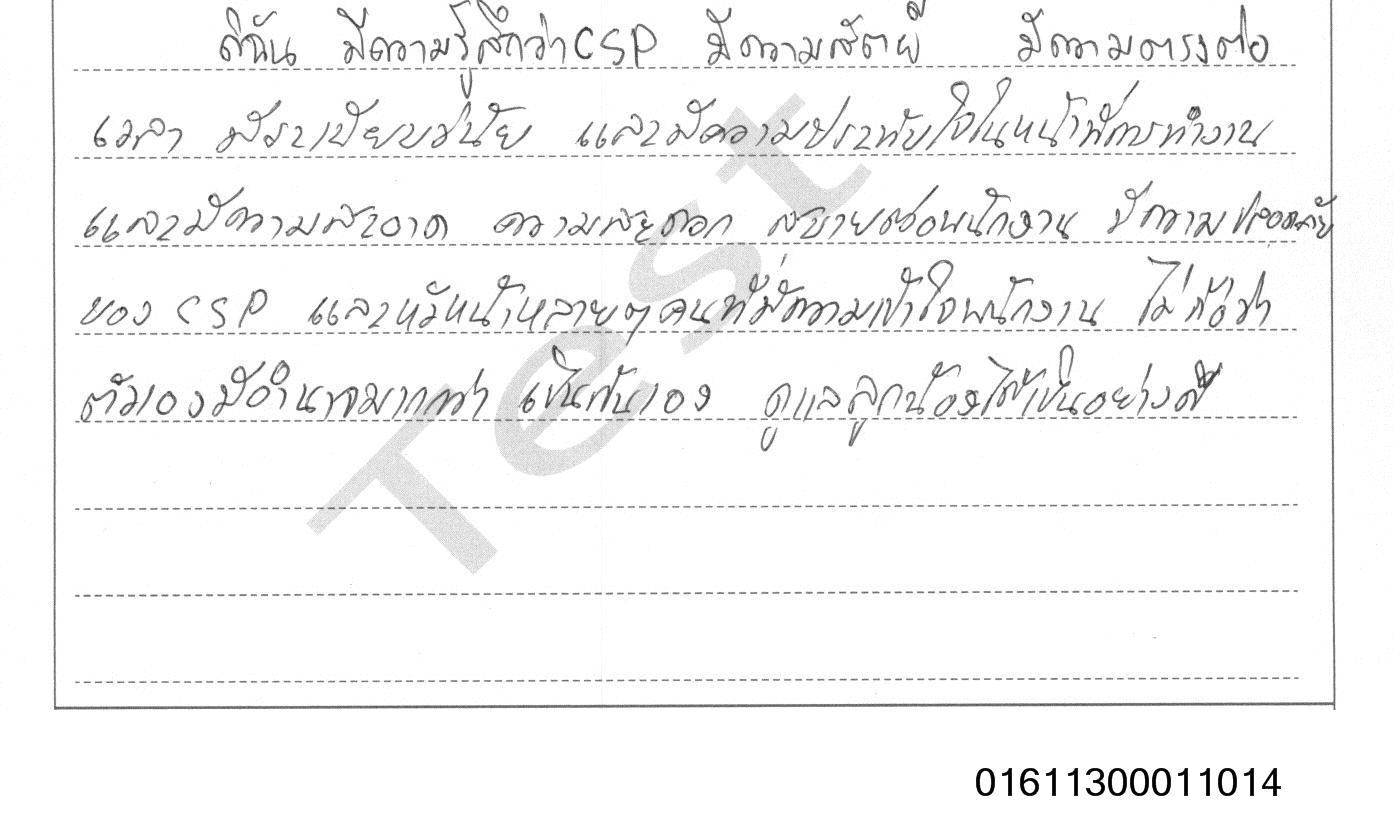 ดิฉัน มีความรู้สึกว่า CSP มีความสัตย์ มีความตรงต่อ
เวลา มีระเบียบวินัย และมีความประทับใจในหน้าที่การทำงาน
และมีความสะอาด ความสะดวก สบายต่อพนักงาน มีความปลอดภัย
ของ CSP และหัวหน้าหลายๆคนที่มีความเข้าใจพนักงาน ไม่ถือว่า
ตัวเองมีอำนาจมากกว่า เป็นกันเอง ดูแลลูกน้องได้เป็นอย่างดี
Test
01611300011014